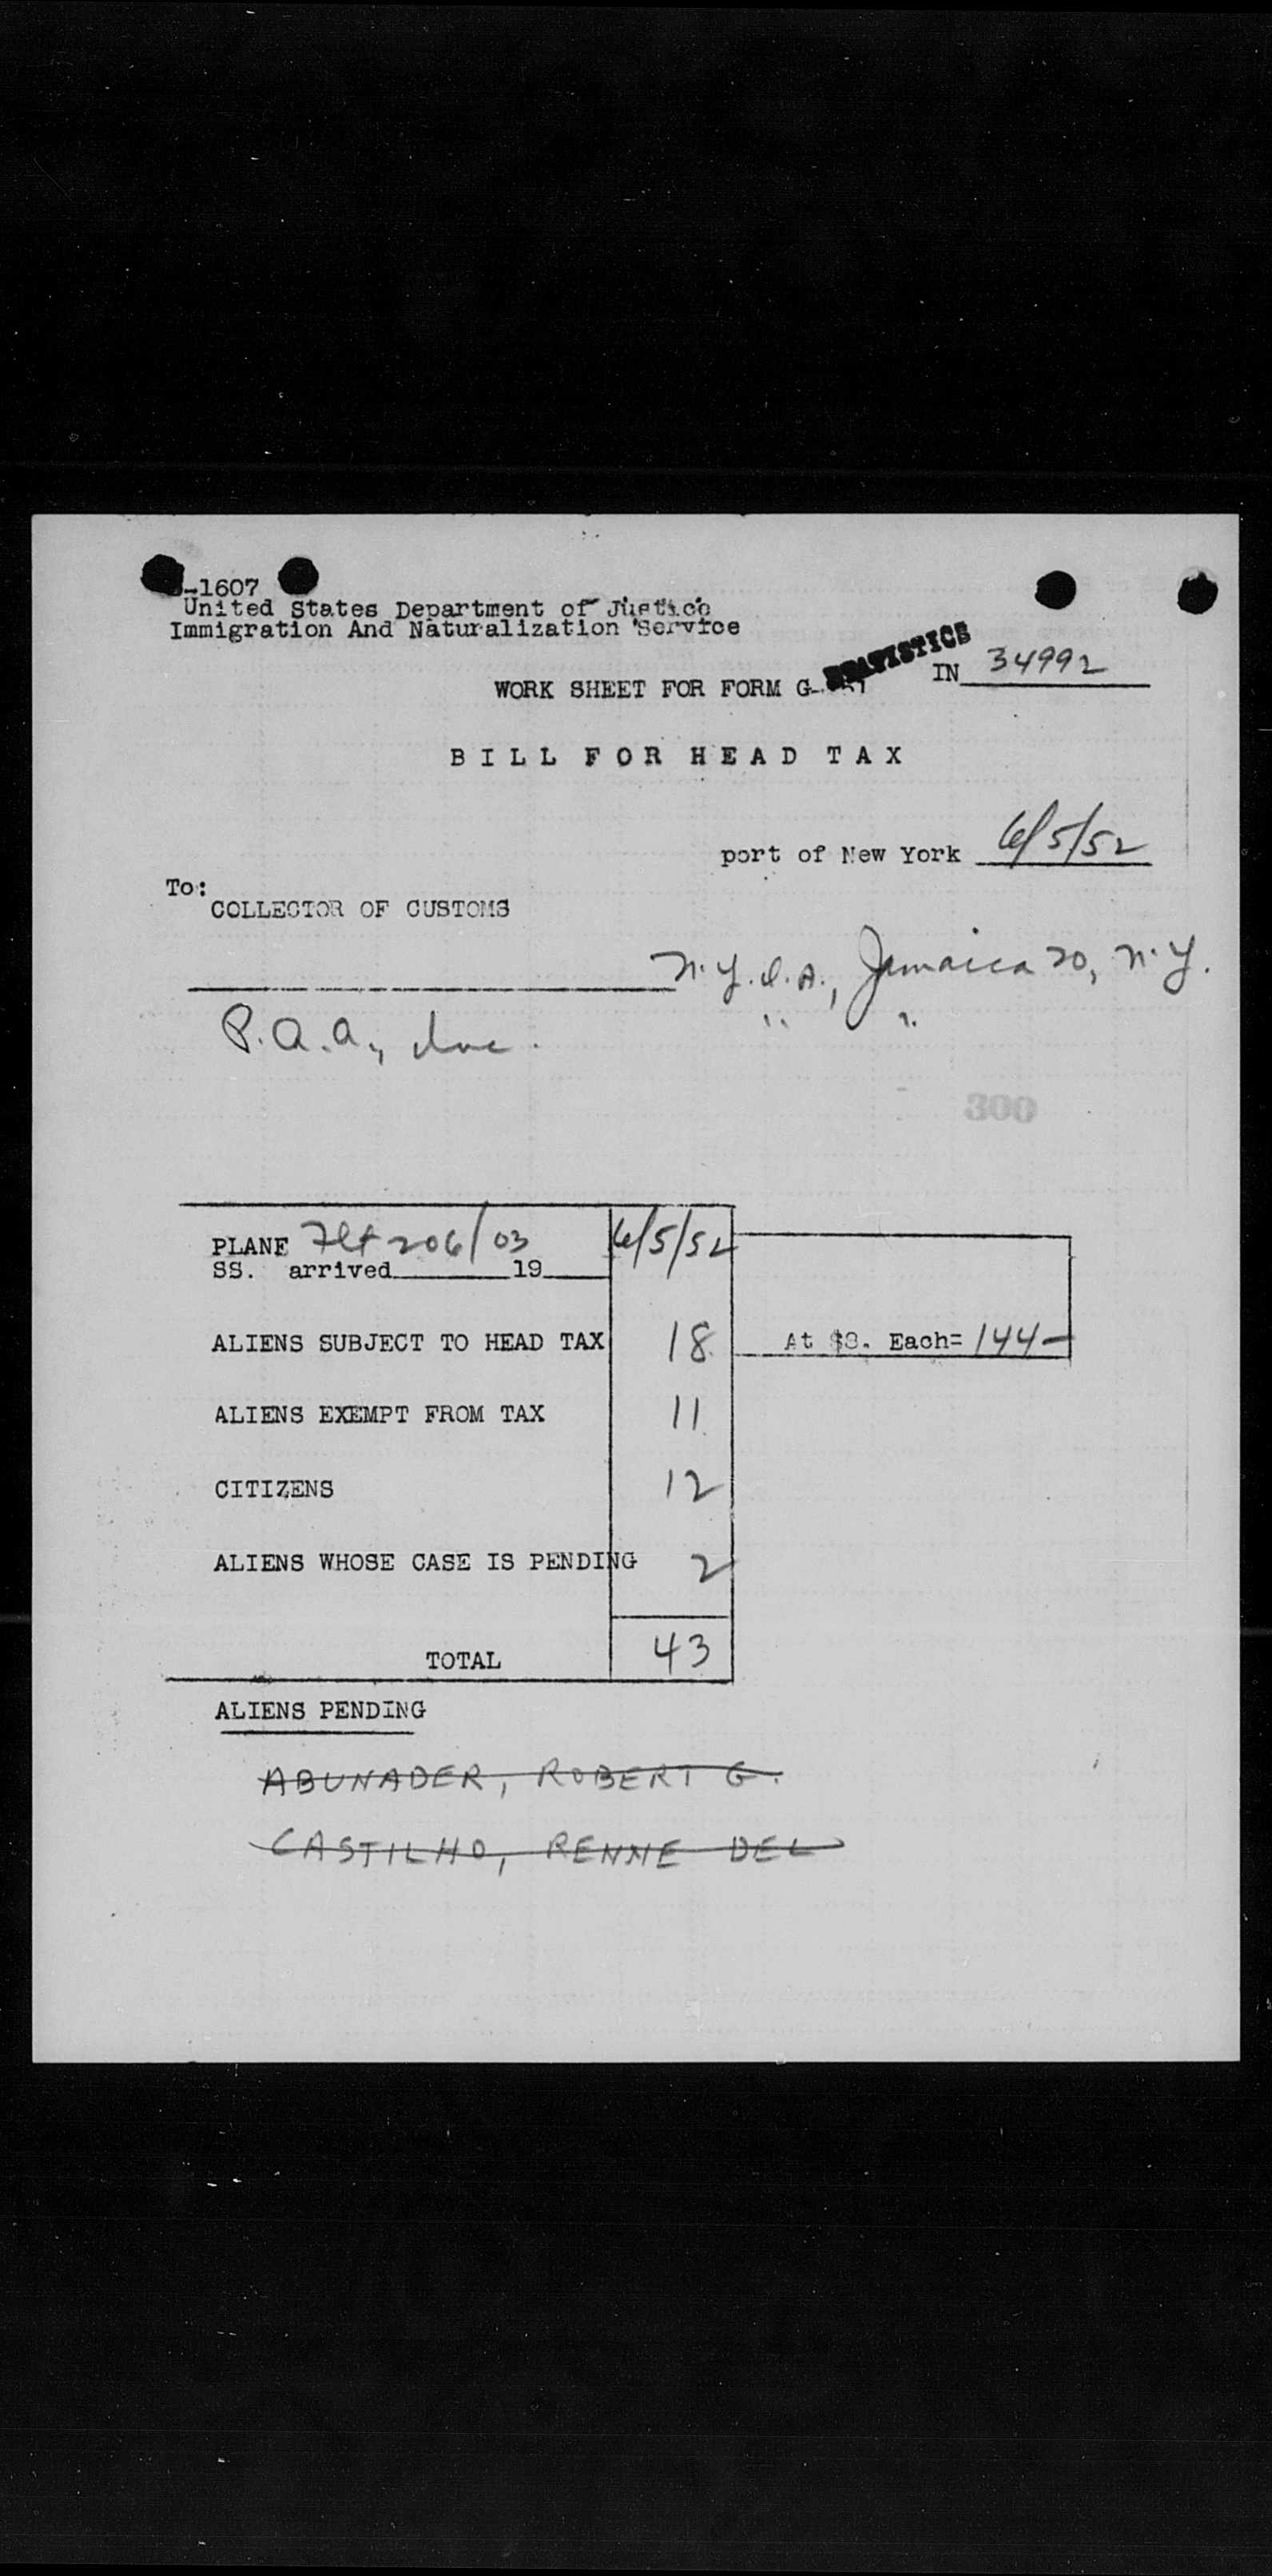 -1607
United States Department of Justice
Immigration And Naturalization Service
STATISTICS
WORK SHEET FOR FORM G- IN 34992
BILL FOR HEAD TAX
port of New York 6/5/52
To:
COLLECTOR OF CUSTOMS
N.Y.I.A., Jamaica 20, N.Y.
P.A.A., Inc. " "
300
PLANE Flt 206/03 6/5/52
SS. arrived 19
ALIENS SUBJECT TO HEAD TAX 18 At $8. Each= 144-
ALIENS EXEMPT FROM TAX 11
CITIZENS 12
ALIENS WHOSE CASE IS PENDING 2
TOTAL 43
ALIENS PENDING
ABUNADER, ROBERT G.
CASTILHO, RENNE DEL